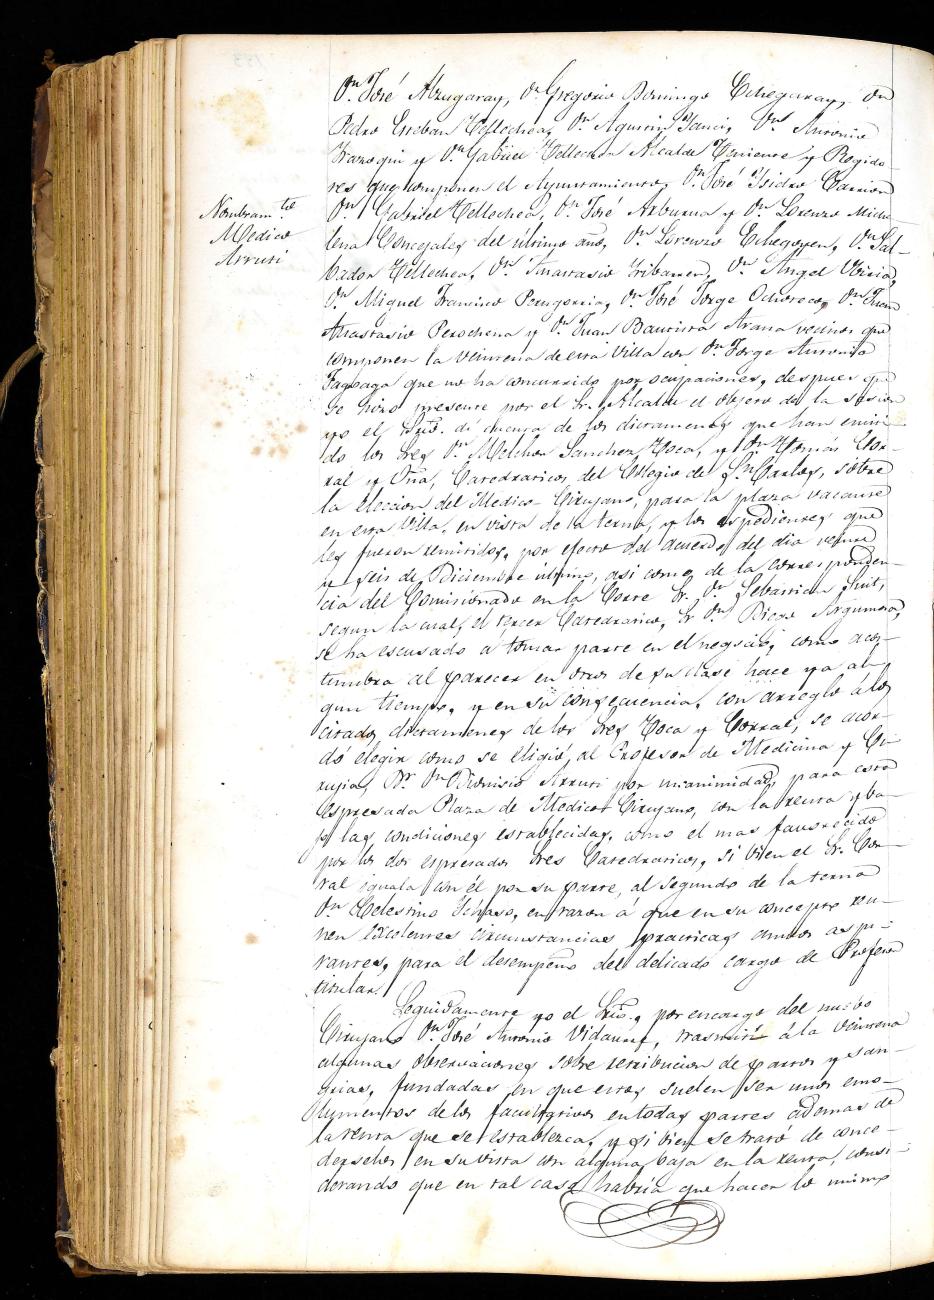 Dn José Alzugaray, Dn Gregorio Domingo Echegaray, Dn
Pedro Esteban Tellechea, Dn Agustin Yanci, Dn Antonio
Irazoqui y Dn Gabriel Tellechea Alcalde Teniente y Regido
res que componen el Ayuntamiento, Dn José Ysidro Carrion
Nombramte
Medico
Arruti
Dn Gabriel Tellechea, Dn José Arburua y Dn Lorenzo Miche
lena Concejales del último año, Dn Lorenzo Echegoyen, Dn Sal-
bador Tellechea, Dn Anastasio Iribarren, Dn Angel
Dn Miguel Francisco Perugorria, Dn José Jorge Ochoteco, Dn Juan
Anastasio Perochena y Dn Juan Bautista Arana vecinos que
componen la veintena de esta Villa con Dn Jorge Antonio
Fagoaga que no ha concurrido por ocupaciones, despues que
se hizo presente por el Sr. Alcalde el objeto de la sesion
yo el Srio. dí cuenta de los dictamenes que han emiti
do los Sres Dn Melchor Sanchez Toca, y Dn Tomás Cor-
ral y Oña, Catedraticos del Colegio de Sn Carlos, sobre
la eleccion del Medico-Cirujano, para la plaza vacante
en esta Villa, en vista de la terna, y los espedientes que
les fueron remitidos, por efecto del acuerdo del dia veinte
y seis de Diciembre último, asi como de la corresponden-
cia del Comisionado en la Corte Sr. Dn Sebastian
segun la cual, el tercer Catedratico, Sr Dn Diego Argumosa,
se ha escusado á tomar parte en el negocio, como acos-
tumbra al parecer en otros de su clase hace ya al-
gun tiempo, y en su consecuencia, con arreglo á los
citados dictamenes de los Sres Toca y Corral, se acor-
dó elegir como se eligió, al Profesor de Medicina y Ci-
rujia, Dr. Dn Dionisio Arruti por unanimidad, para esta
Espresada Plaza de Medico-Cirujano, con la renta y ba-
jo las condiciones establecidas, como el mas favorecido
por los dos espresados Sres Catedraticos, si bien el Sr. Cor-
ral iguala con él por su parte, al segundo de la terna
Dn Celestino Ychaso, en razon á que en su concepto reu-
nen Excelentes circunstancias practicas ambos aspi-
rantes, para el desempeño del delicado cargo de Profesor
titular.
Seguidamente yo el Srio., por encargo del nuebo
Cirujano Dn José Antonio Vidaurre, trasmití á la veintena
algunas observaciones sobre retribucion de partos y san-
grias, fundadas en que estas suelen ser unos emo-
lumentos de los facultativos en todas partes ademas de
la renta que se establezca, y si bien se trató de conce-
derselos en su vista con alguna baja en la renta, consi-
derando que en tal caso habria que hacer lo mismo